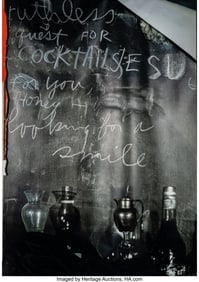 ruthless
quest FOR
COCKTAILS
for you,
Honey
looking for a
smile
Imaged by Heritage Auctions, HA.com